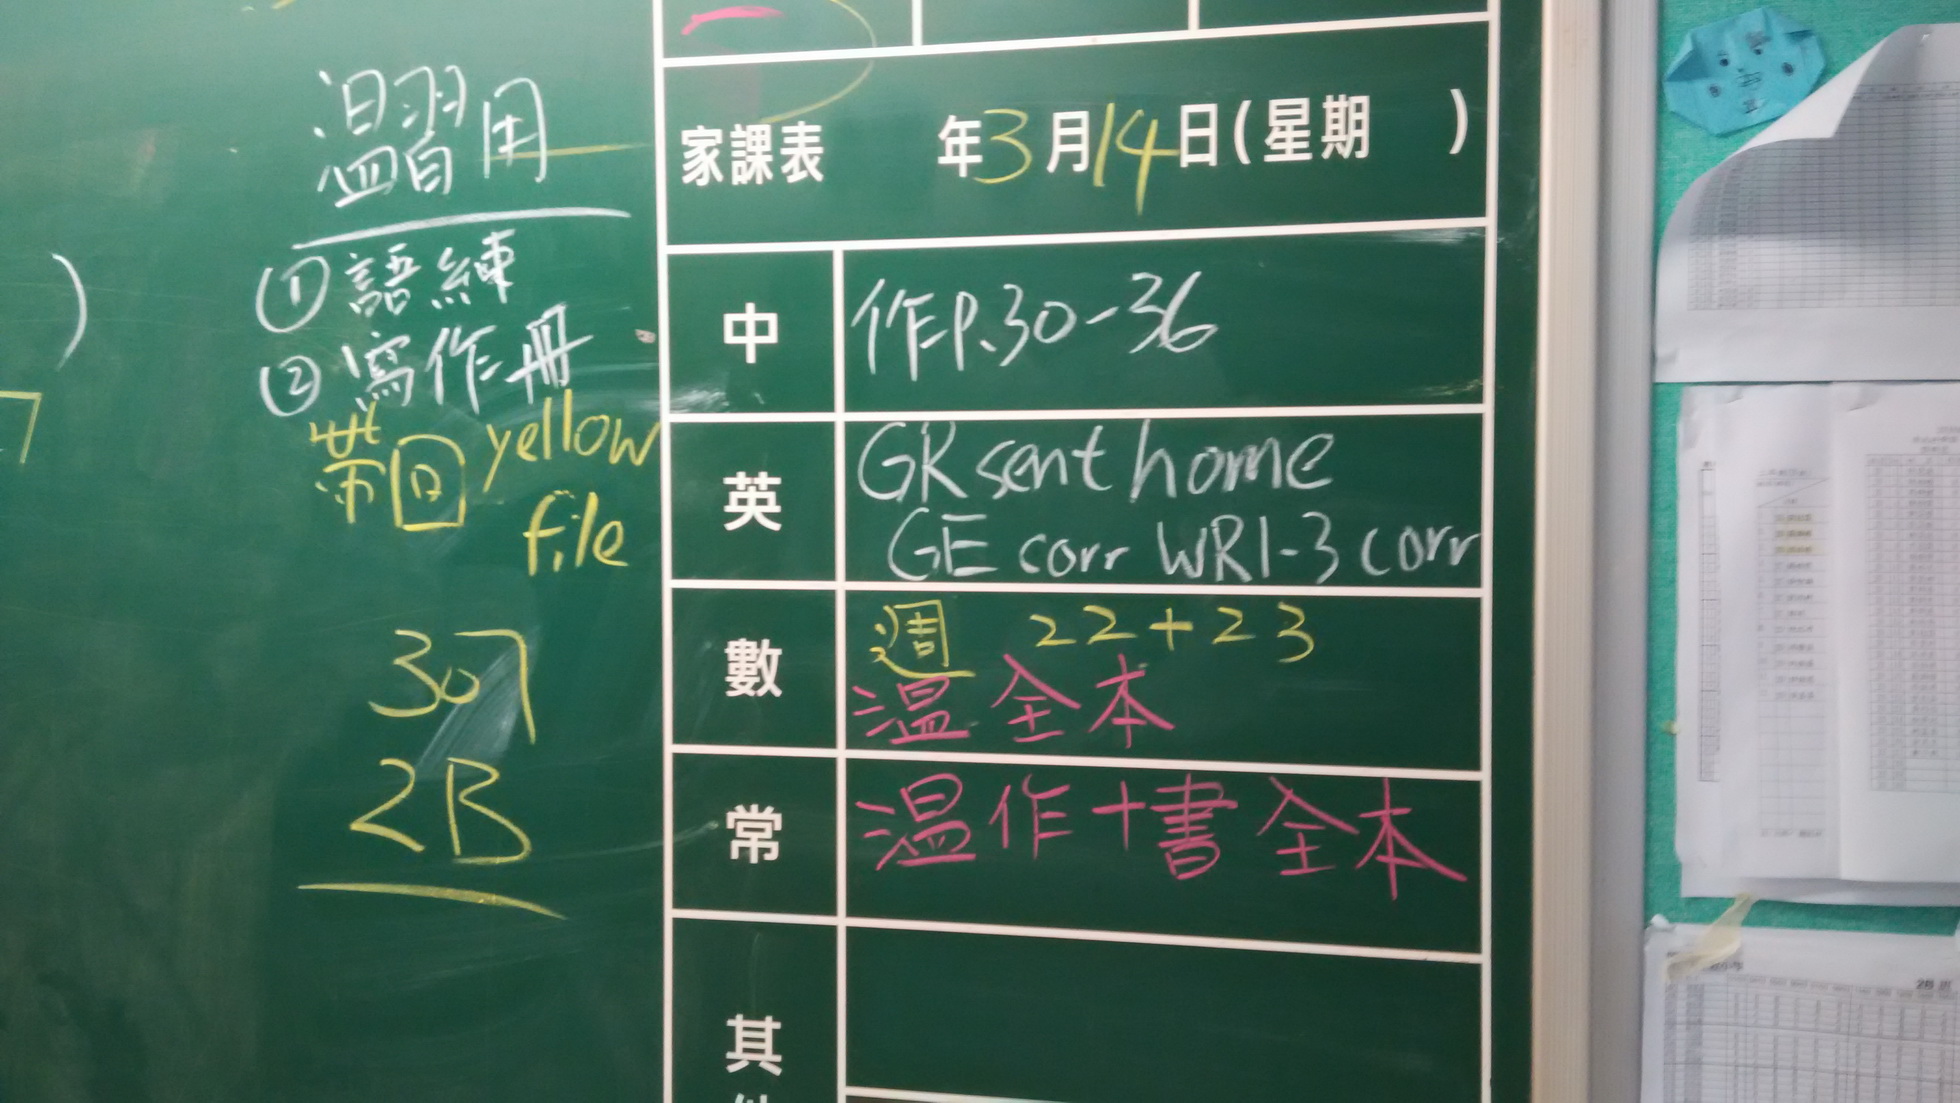 溫習用
① 語練
② 寫作冊
帶回 yellow
file
307
2B
家課表 年3月14日(星期 )
中 作P.30-36
英 GR sent home
GE corr WR1-3 corr
數 週 22+23
溫全本
常 溫作+書全本
其